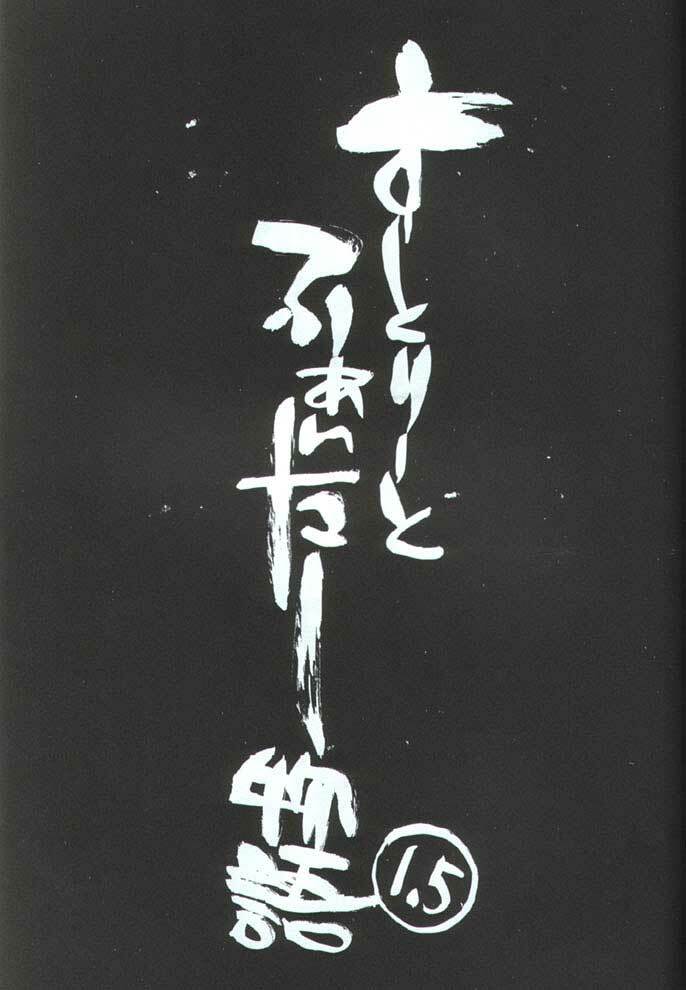 すとりーと
ふぁいたー
物語
1.5